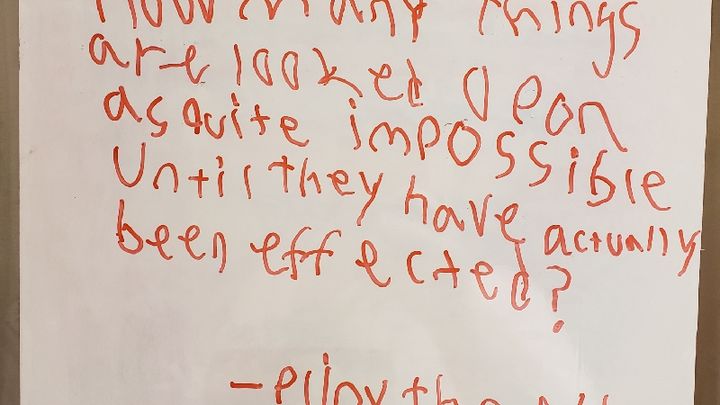 How many things
are looked upon
as quite impossible
Until they have actually
been effected?